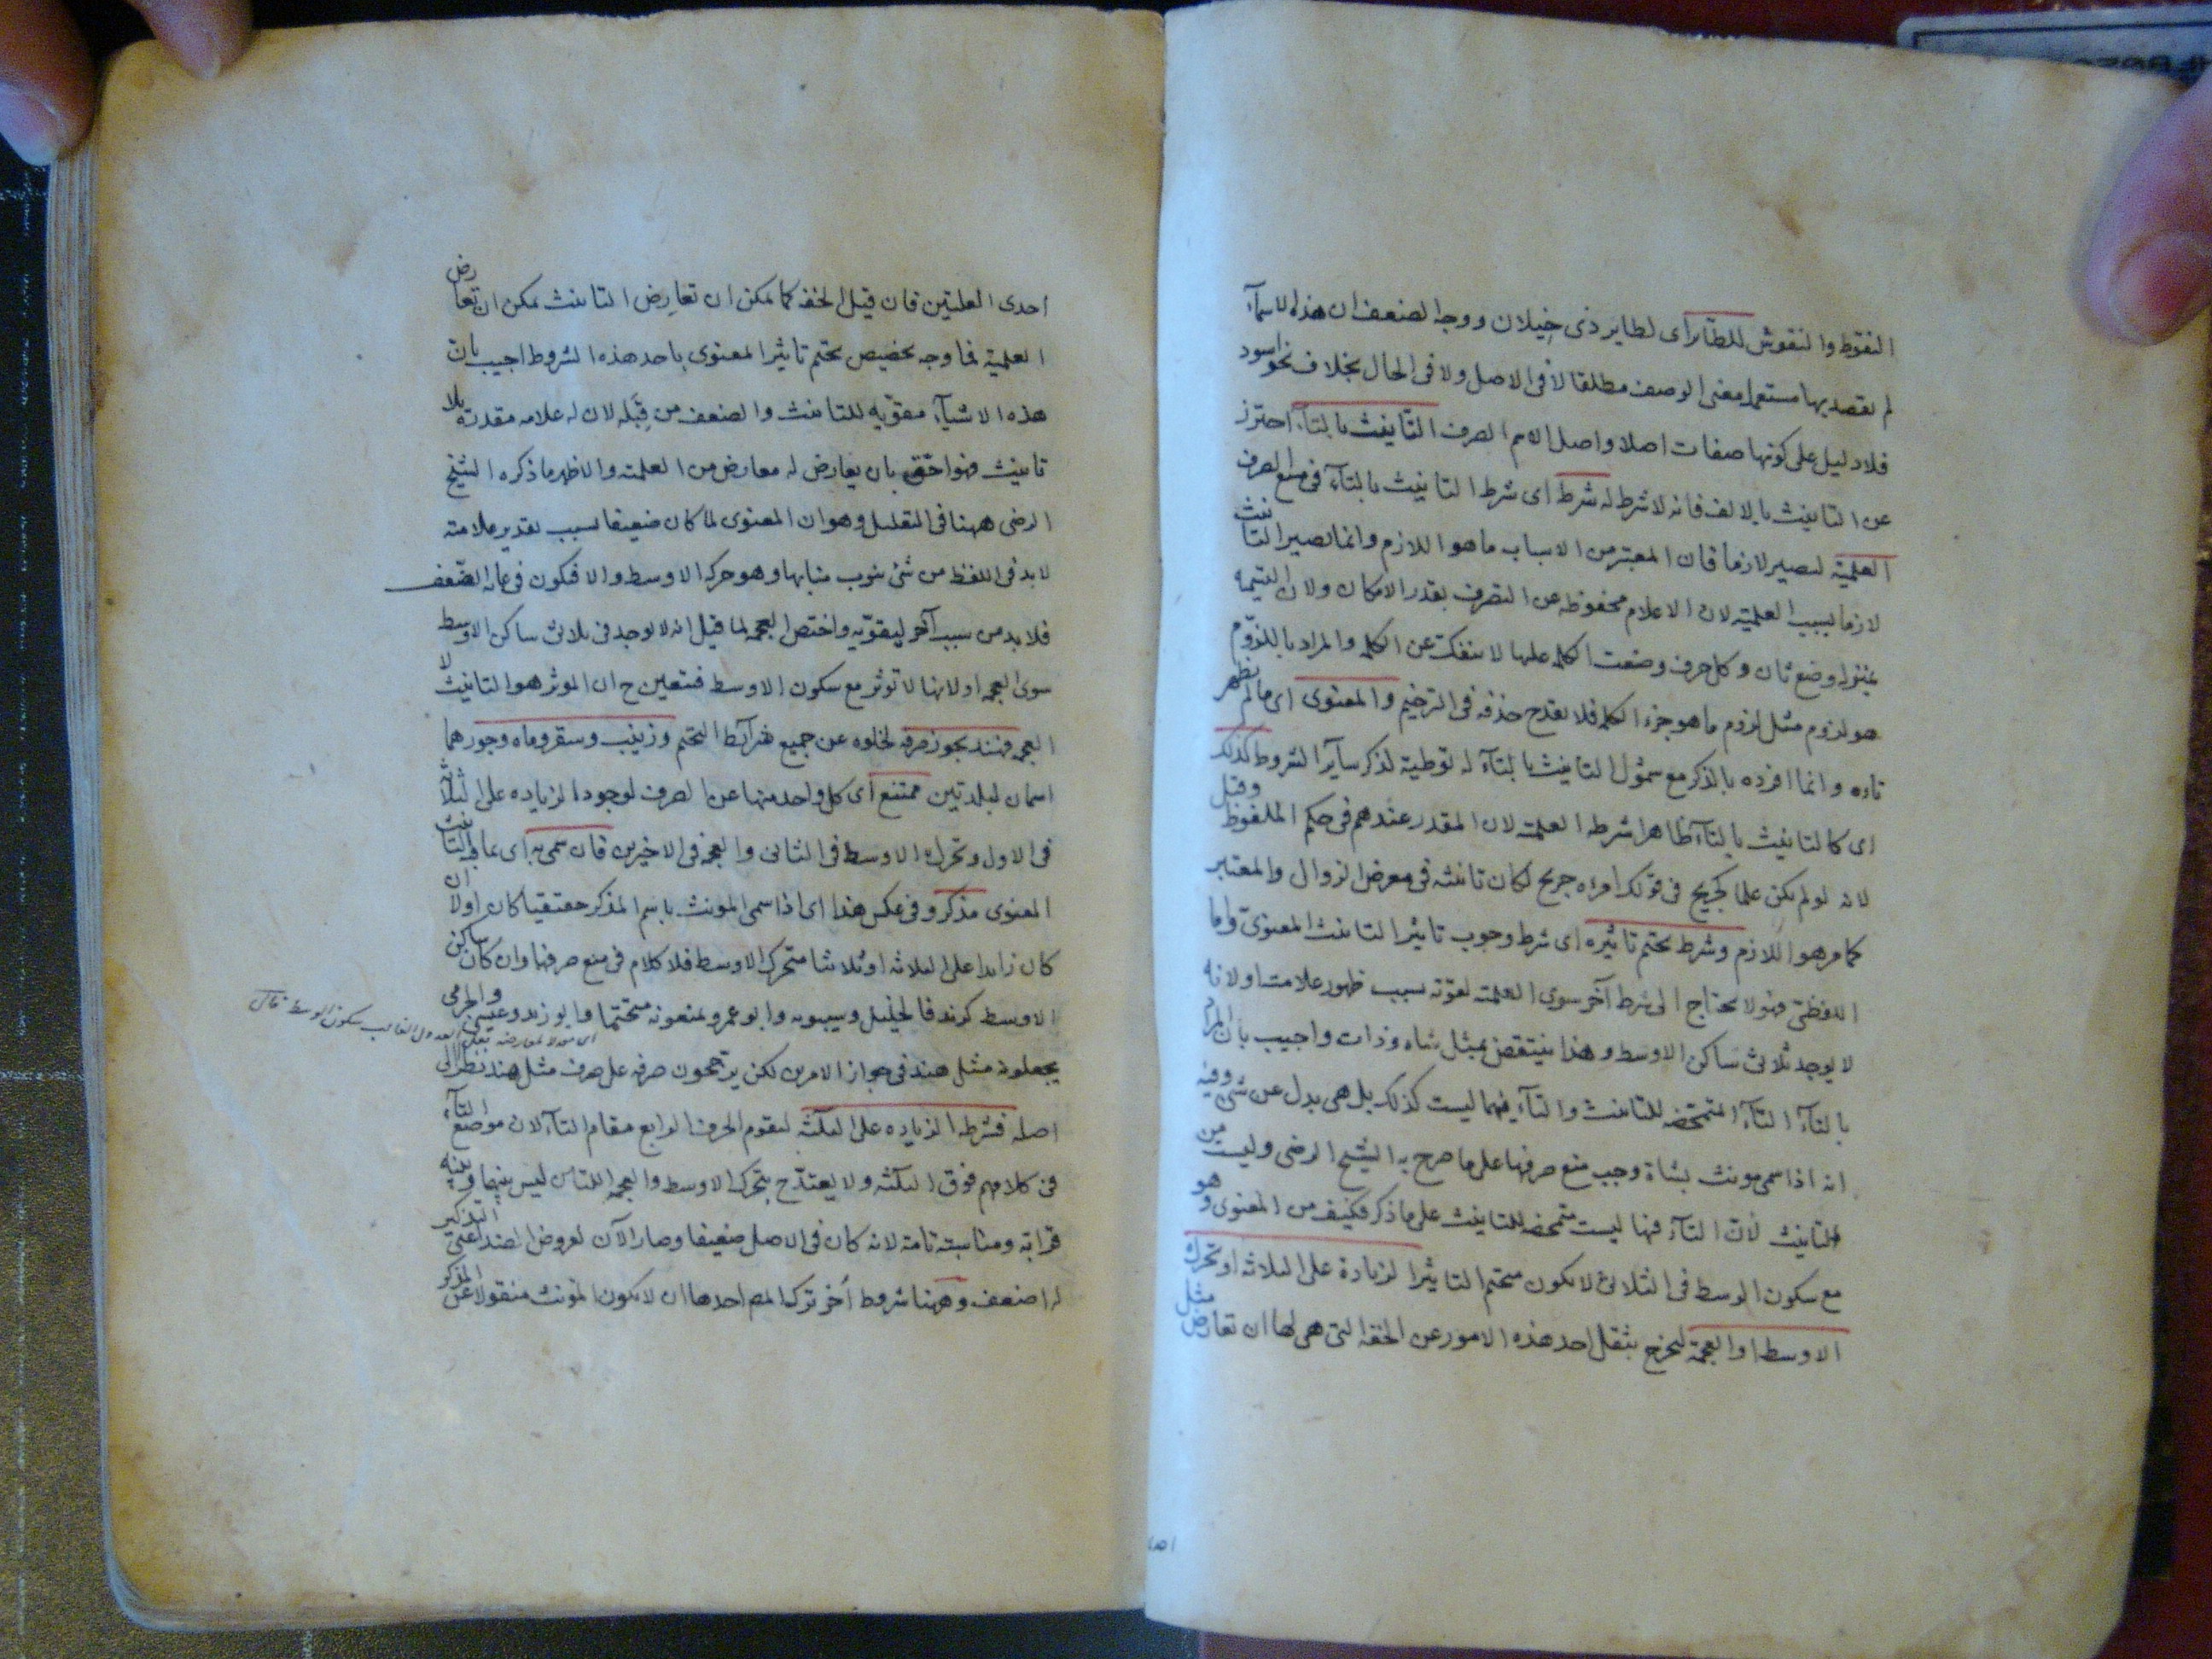 النقوط والنقوش للطائر اى لطاير ذى خيلان ووجه الضعف ان هذه الاسمآء
لم يقصد بها مستعملها معنى الوصف مطلقا لا فى الاصل ولا فى الحال بخلاف نحو اسود
فلا دليل على كونها صفات اصلا واصل الاسم الصرف التانيث بالتآء احترز
عن التانيث بالالف فانه لا شرط له شرطه اى شرط التانيث بالتآء فى منع الصرف
العلمية ليصير لازما فان المعتبر من الاسباب ما هو اللازم وانما يصير التانيث
لازما بسبب العلمية لان الاعلام محفوظه عن التصرف بقدر الامكان ولان التسمية
بمنزلة وضع ثان وكل حرف وضعت الكلمه عليها لا ينفك عن الكلمه والمراد باللزوم
هو لزوم مثل لزوم ما هو جزء الكلمه فلا يقدح حذفه فى الترخيم والمعنوى اى ما لم يظهر
تاءه وانما افرده بالذكر مع شمول التانيث بالتآء له توطية لذكر سآير الشروط كذلك
اى كالتانيث بالتآء ظاهرا شرطه العلمية لان المقدر عندهم فى حكم الملفوظ وقيل
لانه لو لم يكن علما كجريح فى قولك امراه جريح لكان تانيثه فى معرض الزوال والمعتبر
كما مر هو اللازم وشرط تحتم تاثيره اى شرط وجوب تاثير التانيث المعنوى واما
اللفظى فهو لا يحتاج الى شرط آخر سوى العلمية لقوته بسبب ظهور علامته او لانه
لا يوجد ثلاثى ساكن الاوسط وهذا ينتقض بمثل شاه وذات واجيب بان المراد
بالتآء التآء المتمحضه للتانيث والتآء فيهما ليست كذلك بل هى بدل عن شئ وفيه
انه اذا سمى مونث بشاة وجب منع صرفها على ما صرح به الشيخ الرضى وليست من
التانيث لان التآء فيها ليست متمحضه للتانيث على ما ذكر فكيف من المعنوى وهو
مع سكون الوسط فى الثلاثى لا يكون متحتم التاثير الزيادة على الثلاثه او تحرك
الاوسط او العجمة ليخرج بثقل احد هذه الامور عن الخفه التى هى لها ان تعارض مثل
احدى العلتين فان قيل الخفه كما يمكن ان تعارض التانيث يمكن ان تعارض
العلمية فما وجه تخصيص تحتم تاثير المعنوى باحد هذه الشروط اجيب بان
هذه الاشيآء مقويه للتانيث والضعف من قبله لان له علامه مقدرة بلا
تانيث فهو احق بان يعارض له معارض من العلمية والاظهر ما ذكره الشيخ
الرضى ههنا فى التعليل وهو ان المعنوى لما كان ضعيفا بسبب تقدير علامته
لا بد فى اللفظ من شئ ينوب منابها وهو حركه الاوسط والا فيكون فى غاية الضعف
فلا بد من سبب آخر ليقويه واختص العجمه لما قيل انه لا يوجد فى ثلاثى ساكن الاوسط
سوى العجمه او لانها لا توثر مع سكون الاوسط فتعين ح ان الموثر هو التانيث لا
العجمه فهند يجوز صرفه لخلوه عن جميع شرآئط التحتم وزينب وسقر وماه وجور هما
اسمان لبلدتين ممتنع اى كل واحد منها عن الصرف لوجود الزياده على الثلاثه
فى الاول وتحرك الاوسط فى الثانى والعجمه فى الاخيرين فان سمى به اى بما فيه التانيث
المعنوى مذكر وفى عكس هذا اى اذا سمى المونث باسم المذكر حقيقيا كان اولا ان
كان زايدا على الثلاثه او ثلاثيا متحرك الاوسط فلا كلام فى منع صرفها وان كان ساكن
الاوسط كزيد فالخليل وسيبويه وابو عمرو يمنعونه متحتما وابو زيد وعيسى والجرمى
يجعلونه مثل هند فى جواز الامرين لكن يرجحون صرفه على صرف مثل هند نظرا الى
اصله فشرطه الزياده على الثلثه ليقوم الحرف الرابع مقام التآء لان موضع التآء
فى كلامهم فوق الثلثه ولا يعتد ح بتحرك الاوسط والعجمه اللتان ليس بينهما وبينه
قرابة ومناسبته تامة لانه كان فى الاصل ضعيفا وصار الآن لعروض الضد اعنى التذكير
له اضعف وههنا شروط أخر ترك المص احدها ان لا يكون المونث منقولا عن المذكر